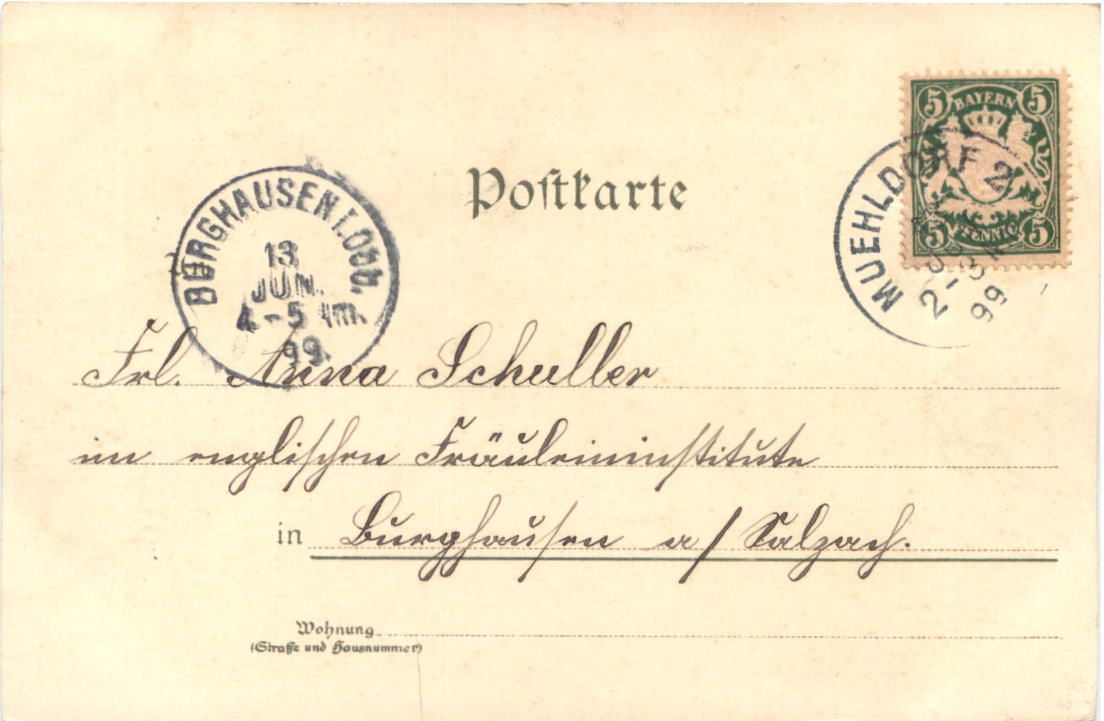 5 BAYERN 5
5 PFENNIG 5
MUEHLDORF 2
99
Postkarte
BURGHAUSEN I. Obb.
13
JUN.
4-5 Nm.
99
Frl. Anna Schuller
im englischen Fräuleininstitute
in Burghausen a/Salzach.
Wohnung
(Straße und Hausnummer)